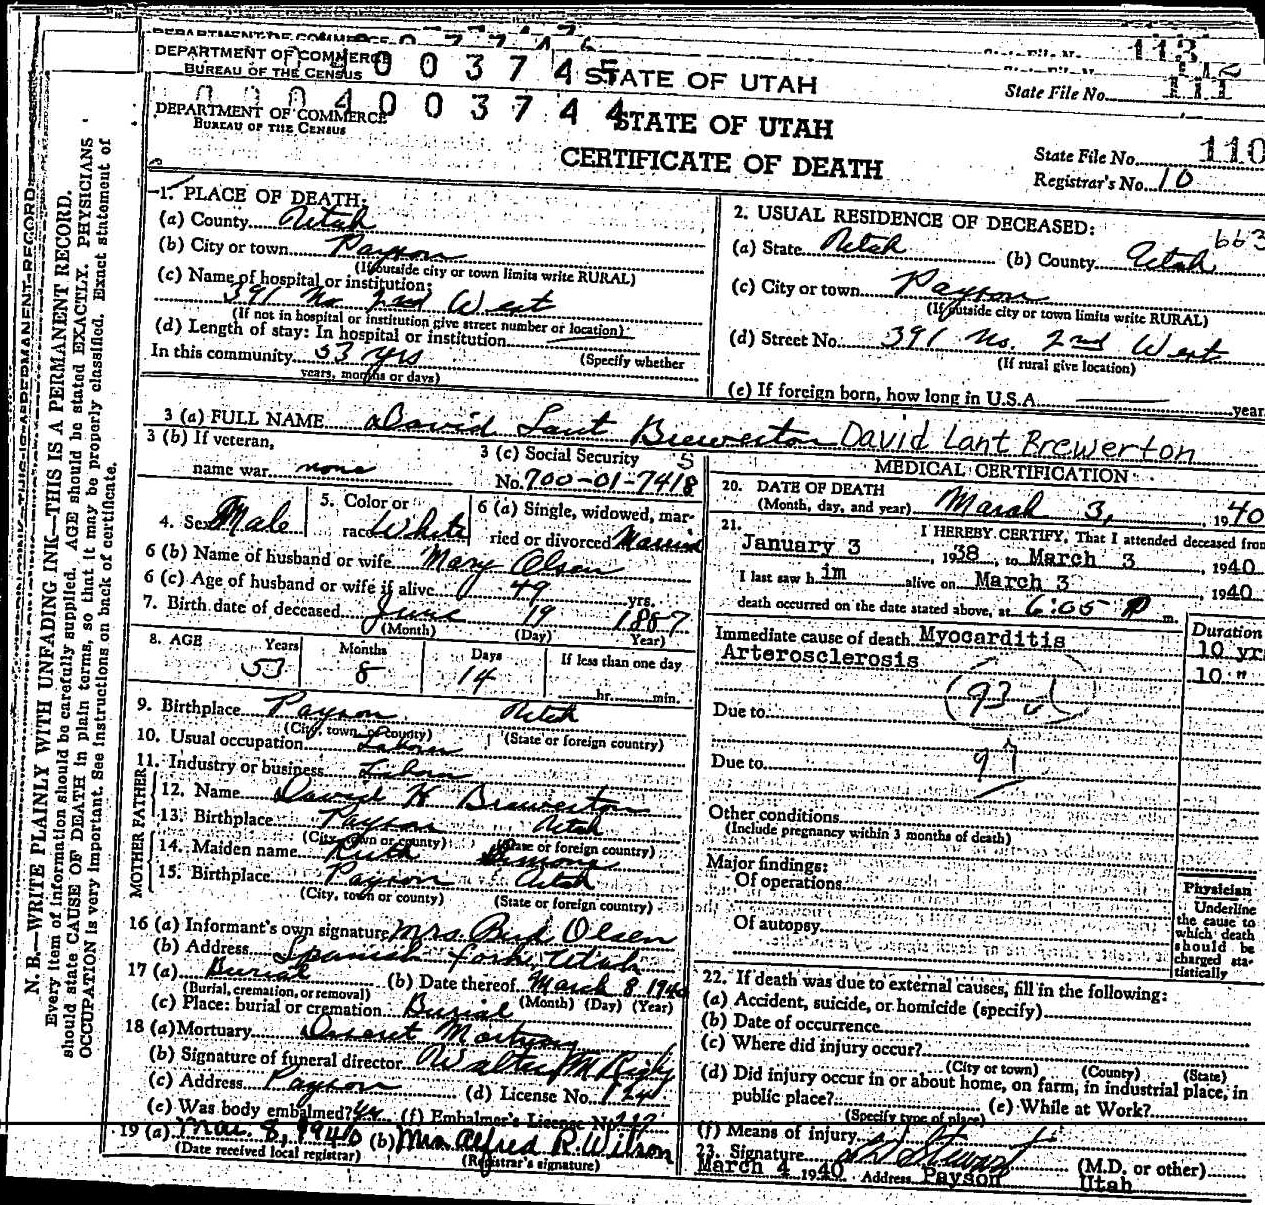 DEPARTMENT OF COMMERCE
BUREAU OF THE CENSUS
0 0 3 7 4 5
STATE OF UTAH
State File No. 111
DEPARTMENT OF COMMERCE
BUREAU OF THE CENSUS
0 0 0 4 0 0 3 7 4 4
STATE OF UTAH
CERTIFICATE OF DEATH
State File No. 110
Registrar's No. 10
N. B.—WRITE PLAINLY WITH UNFADING INK—THIS IS A PERMANENT RECORD.
Every item of information should be carefully supplied. AGE should be stated EXACTLY. PHYSICIANS
should state CAUSE OF DEATH in plain terms, so that it may be properly classified. Exact statement of
OCCUPATION is very important. See instructions on back of certificate.
1. PLACE OF DEATH:
(a) County Utah
(b) City or town Payson
(If outside city or town limits write RURAL)
(c) Name of hospital or institution:
391 No. 2nd West
(If not in hospital or institution give street number or location)
(d) Length of stay: In hospital or institution
(Specify whether
In this community 53 yrs
years, months or days)
2. USUAL RESIDENCE OF DECEASED:
663
(a) State Utah (b) County Utah
(c) City or town Payson
(If outside city or town limits write RURAL)
(d) Street No. 391 No. 2nd West
(If rural give location)
(e) If foreign born, how long in U.S.A. year
3 (a) FULL NAME David Lant Brewerton David Lant Brewerton
3 (b) If veteran,
name war none
3 (c) Social Security
No. 700-01-7418
5
4. Sex Male
5. Color or
race White
6 (a) Single, widowed, mar-
ried or divorced Married
6 (b) Name of husband or wife Mary Olsen
6 (c) Age of husband or wife if alive 49 yrs.
7. Birth date of deceased June 19 1887
(Month) (Day) Year)
8. AGE Years Months Days If less than one day
53 8 14 hr. min.
9. Birthplace Payson Utah
(City, town or county) (State or foreign country)
10. Usual occupation Laborer
11. Industry or business Labor
FATHER
12. Name David H Brewerton
13. Birthplace Payson Utah
(City, town or county) (State or foreign country)
MOTHER
14. Maiden name Ruth Simons
15. Birthplace Payson Utah
(City, town or county) (State or foreign country)
16 (a) Informant's own signature Mrs. Bud Olsen
(b) Address Spanish Fork, Utah
17 (a) Burial (b) Date thereof March 8 1940
(Burial, cremation, or removal) (Month) (Day) (Year)
(c) Place: burial or cremation Burial
18 (a) Mortuary Deseret Mortuary
(b) Signature of funeral director Walter M Rigby
(c) Address Payson (d) License No. 124
(e) Was body embalmed? Yes (f) Embalmer's License No. 217
19 (a) Mar. 8, 1940 (b) Mrs. Alfred R. Wilson
(Date received local registrar) (Registrar's signature)
MEDICAL CERTIFICATION
20. DATE OF DEATH
(Month, day, and year) March 3, 1940
21. I HEREBY CERTIFY, That I attended deceased from
January 3, 1938, to March 3, 1940
I last saw him alive on March 3, 1940
death occurred on the date stated above, at 6:05 P m.
Duration
Immediate cause of death Myocarditis 10 yr
Arterosclerosis 10 "
93 d
Due to
97
Due to
Other conditions
(Include pregnancy within 3 months of death)
Major findings:
Of operations
Of autopsy
Physician
Underline
the cause to
which death
should be
charged sta-
tistically
22. If death was due to external causes, fill in the following:
(a) Accident, suicide, or homicide (specify)
(b) Date of occurrence
(c) Where did injury occur?
(City or town) (County) (State)
(d) Did injury occur in or about home, on farm, in industrial place, in
public place? (e) While at Work?
(Specify type of place)
(f) Means of injury
23. Signature Stewart (M.D. or other)
March 4 1940 Address Payson Utah